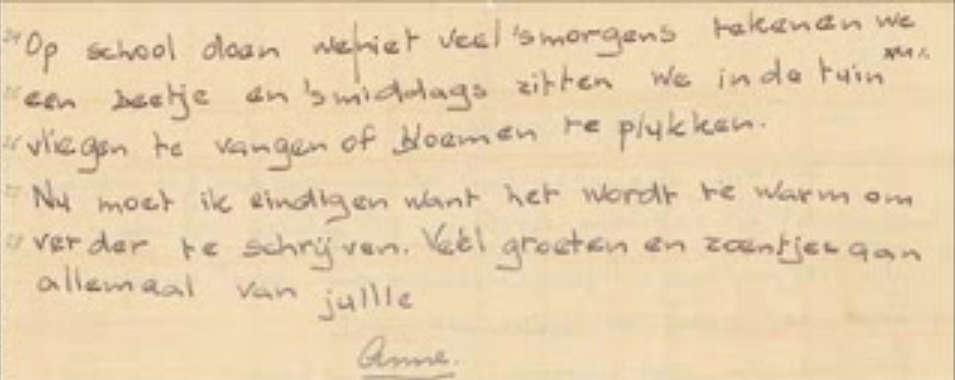 24 Op school doen we niet veel 'smorgens tekenen we
25 een beetje en 'smiddags zitten we in de tuin
26 vliegen te vangen of bloemen te plukken.
27 Nu moet ik eindigen want het wordt te warm om
28 verder te schrijven. Veel groeten en zoentjes aan
allemaal van jullie
Anne.